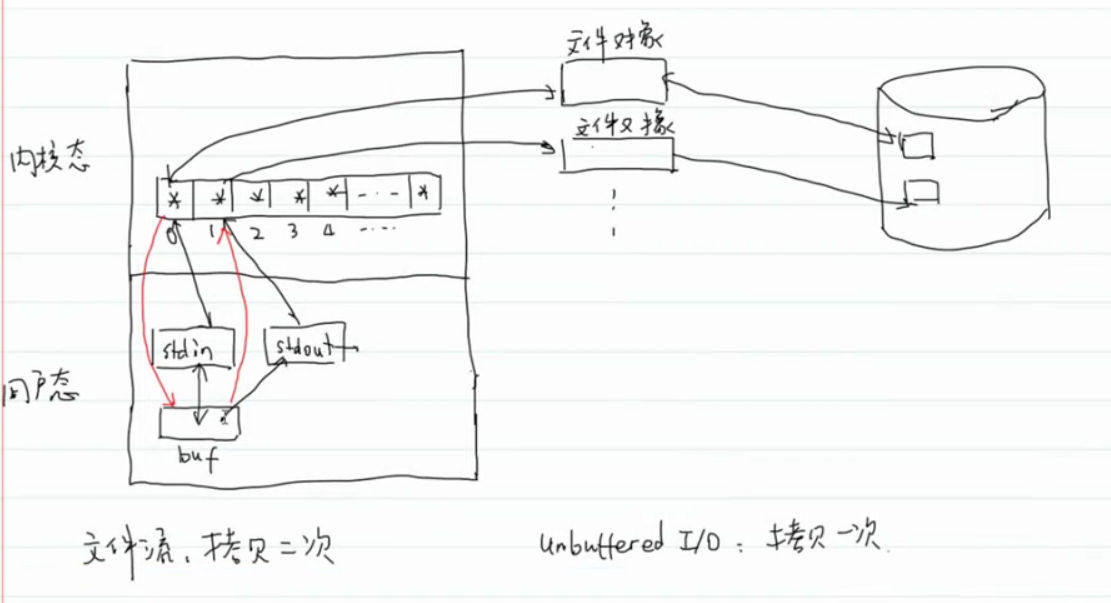 文件对象
文件对象
内核态
* * * * * - - - *
0 1 2 3 4 ....
stdin stdout
用户态
buf
文件流：拷贝二次
Unbuffered I/O：拷贝一次.